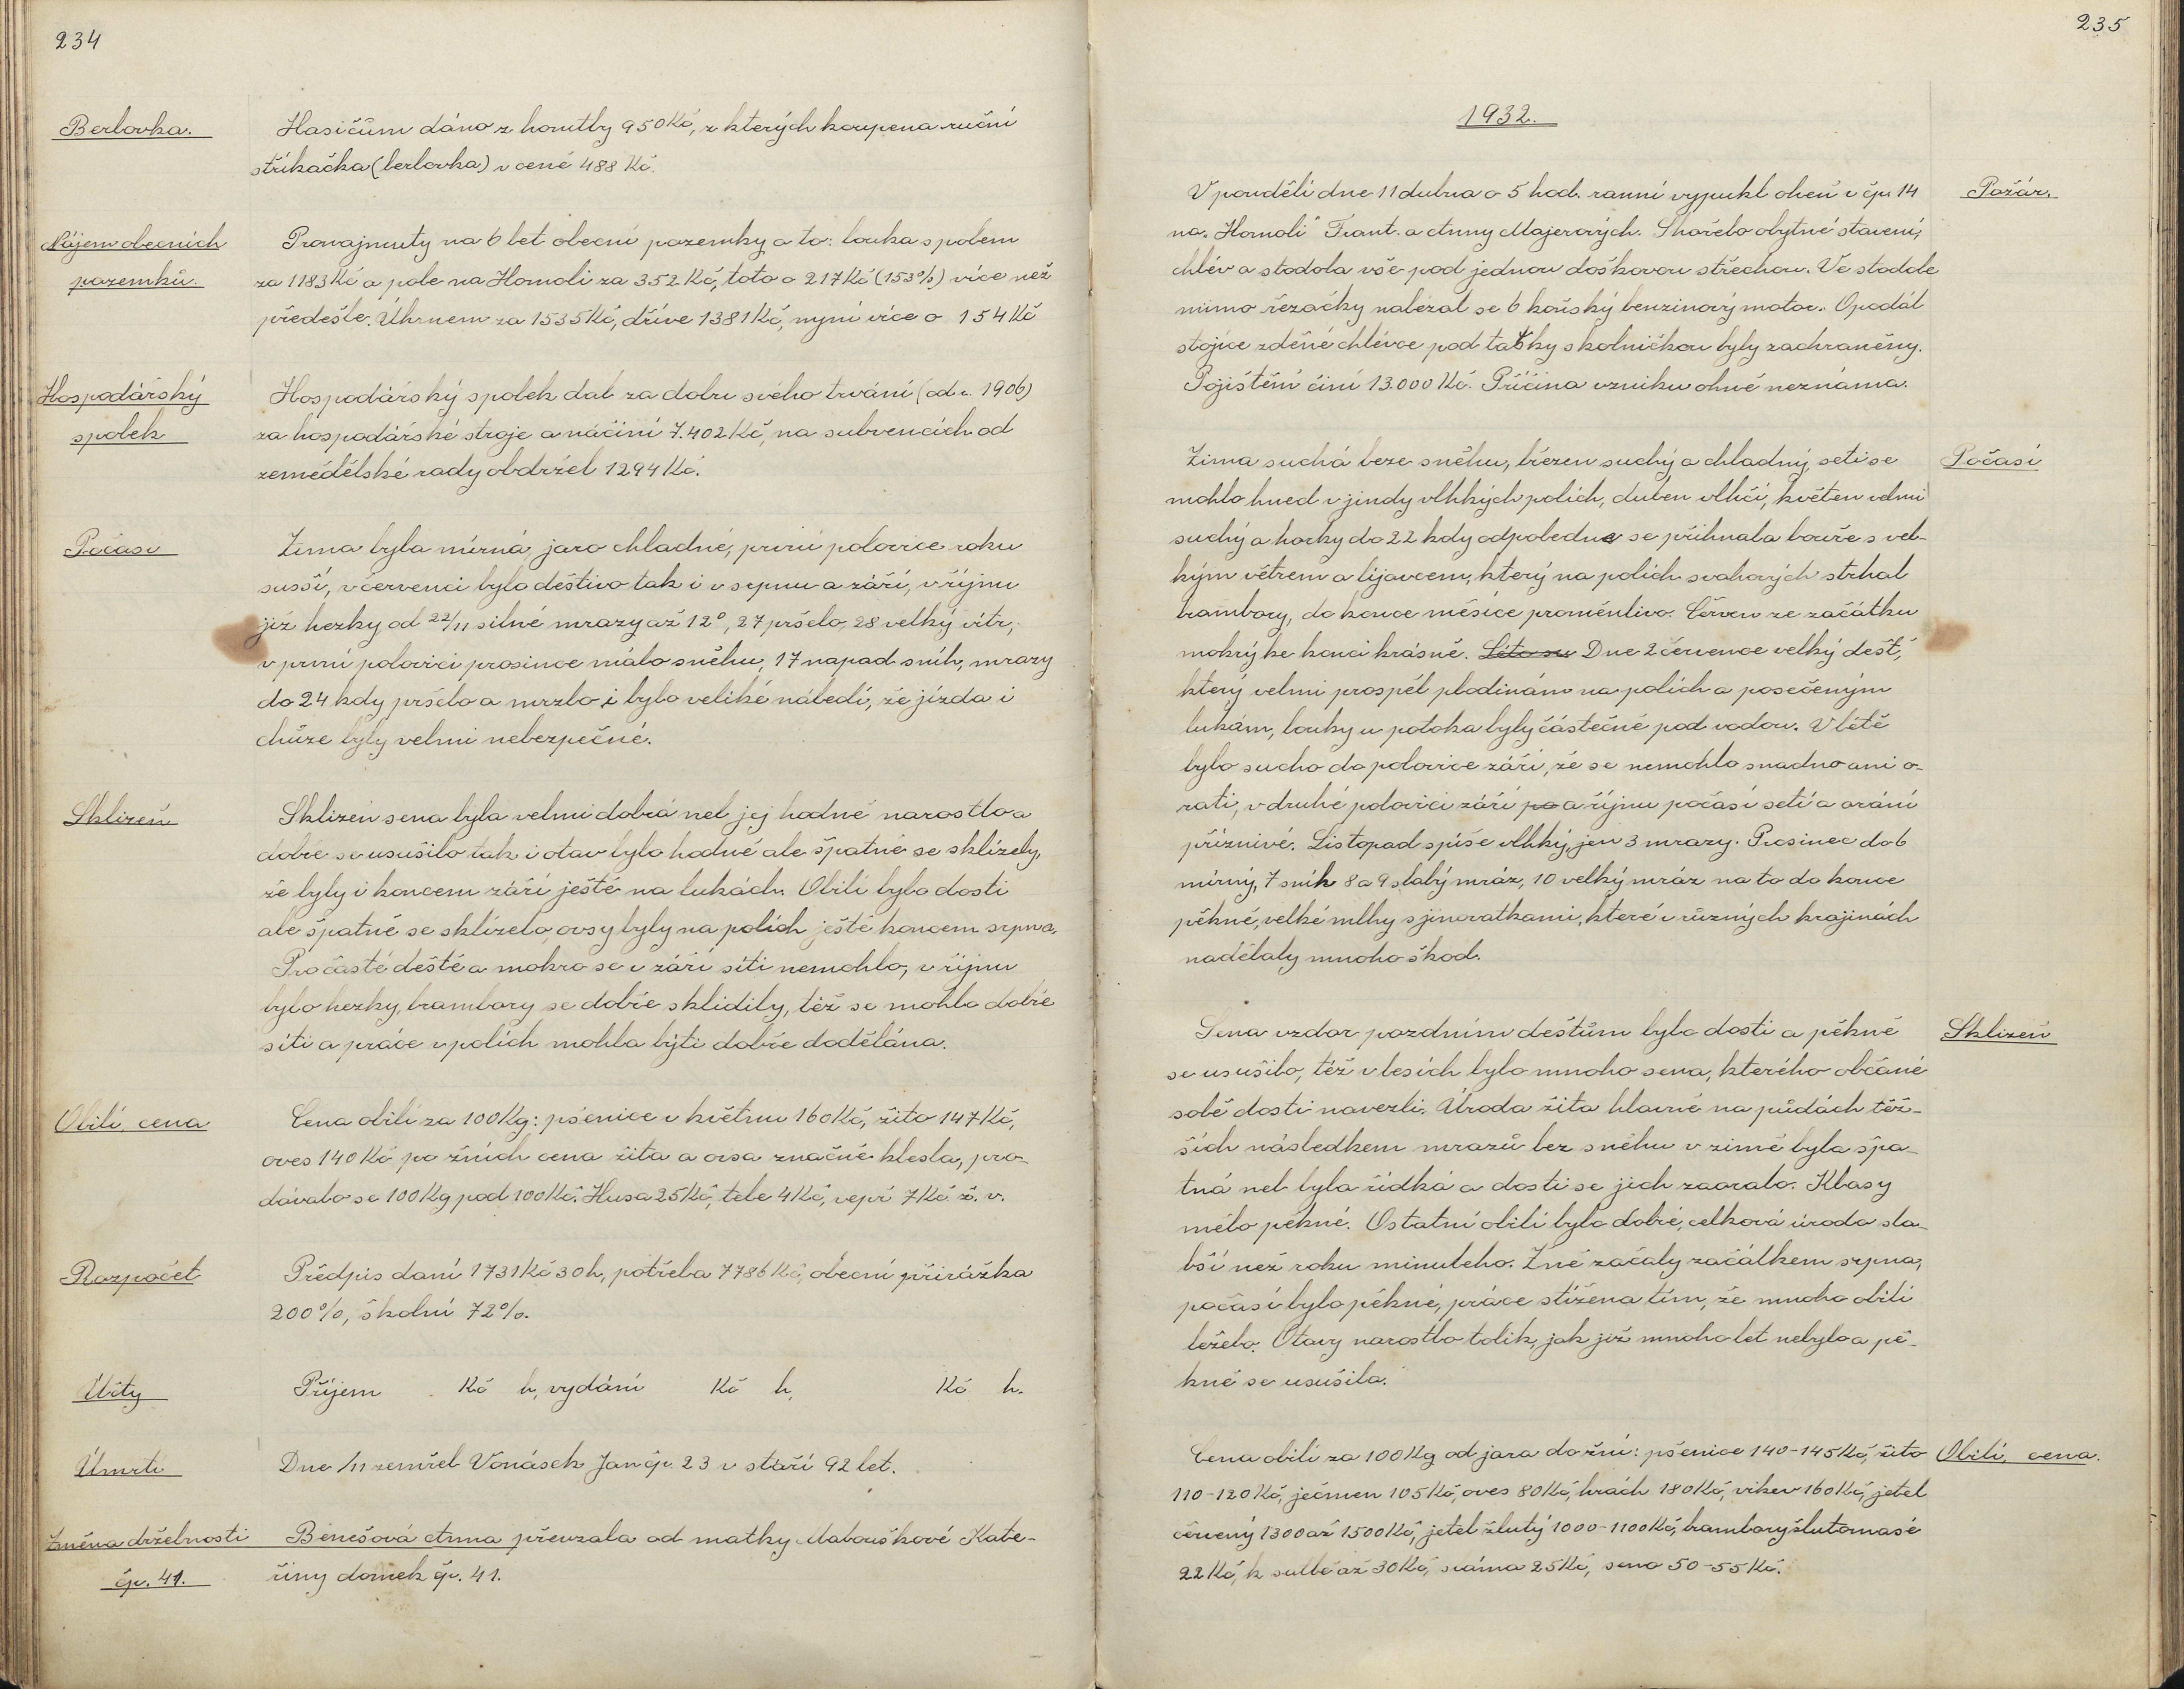 234
Berlovka.
Hasičům dáno z honitby 950 Kč, z kterých koupena ruční
stříkačka (berlovka) v ceně 488 Kč.
Nájem obecních
pozemků.
Pronajmuty na 6 let obecní pozemky a to: louka s polem
za 1183 Kč a pole na Homoli za 352 Kč, toto o 217 Kč (153%) více než
předešle. Úhrnem za 1535 Kč, dříve 1381 Kč, nyní více o 154 Kč
Hospodářský
spolek
Hospodářský spolek dal za dobu svého trvání (od r. 1906)
za hospodářské stroje a náčiní 7.402 Kč, na subvencích od
zemědělské rady obdržel 1294 Kč.
Počasí
Zima byla mírná, jaro chladné, první polovice roku
sušší, v červenci bylo deštivo tak i v srpnu a září, v říjnu
již hezky od 22/11 silné mrazy až 12°, 27 pršelo, 28 velký vítr,
v první polovici prosince málo sněhu, 17 napad sníh, mrazy
do 24 kdy pršelo a mrzlo i bylo veliké náledí, že jízda i
chůze byly velmi nebezpečné.
Sklizeň
Sklizeň sena byla velmi dobrá neb jej hodně narostlo a
dobře se usušilo tak i otav bylo hodně ale špatně se sklízely,
že byly i koncem září ještě na lukách. Obilí bylo dosti
ale špatně se sklízelo, ovsy byly na polích ještě koncem srpna.
Pro časté deště a mokro se v září síti nemohlo, v říjnu
bylo hezky, brambory se dobře sklidily, též se mohlo dobře
síti a práce v polích mohla býti dobře dodělána.
Obilí, cena
Cena obilí za 100 Kg: pšenice v květnu 160 Kč, žito 147 Kč,
oves 140 Kč po žních cena žita a ovsa značně klesla, pro-
dávalo se 100 Kg pod 100 Kč. Husa 25 Kč, tele 4 Kč, vepř 7 Kč ž. v.
Rozpočet
Předpis daní 1731 Kč 30 h, potřeba 7786 Kč, obecní přirážka
200%, školní 72%.
Účty
Příjem Kč h, vydání Kč h, Kč h.
Úmrtí
Dne /11 zemřel Vonásek Jan čp. 23 v stáří 92 let.
Změna držebnosti
čp. 41.
Benešová Anna převzala od matky Mabouškové Kate-
řiny domek čp. 41.
235
1932.
Požár.
V pondělí dne 11 dubna o 5 hod. ranní vypukl oheň v čp. 14
na „Homoli" Frant. a Anny Majerových. Shořelo obytné stavení,
chlév a stodola vše pod jednou doškovou střechou. Ve stodole
mimo řezačky nalézal se 6 koňský benzinový motor. Opodál
stojíce zděné chlévce pod tašky s kolničkou byly zachráněny.
Pojištění činí 13.000 Kč. Příčina vzniku ohně neznáma.
Počasí
Zima suchá beze sněhu, březen suchý a chladný, seti se
mohlo hned v jindy vlhkých polích, duben vlhčí, květen velmi
suchý a horky do 22 kdy odpoledne se přihnala bouře s vel-
kým větrem a lijavcem, který na polích svahových strhal
brambory, do konce měsíce proměnlivo. Červen ze začátku
mokrý ke konci krásně. Léto su Dne 2 července velký dešť,
který velmi prospěl plodinám na polích a posečeným
lukám, louky u potoka byly částečně pod vodou. V létě
bylo sucho do polovice září, že se nemohlo snadno ani o-
rati, v druhé polovici září po a říjnu počasí setí a orání
příznivé. Listopad spíše vlhký, jen 3 mrazy. Prosinec do 6
mírný, 7 sníh 8 a 9 slabý mráz, 10 velký mráz na to do konce
pěkné, velké mlhy s jinovatkami, které v různých krajinách
nadělaly mnoho škod.
Sklizeň
Sena vzdor pozdním dešťům bylo dosti a pěkně
se usušilo, též v lesích bylo mnoho sena, kterého občané
sobě dosti navezli. Úroda žita hlavně na půdách těž-
ších následkem mrazů bez sněhu v zimě byla špa-
tná neb byla řídká a dosti se jich zaoralo. Klasy
mělo pěkné. Ostatní obilí bylo dobré, celková úroda sla-
bší než roku minulého. Žně začaly začátkem srpna,
počasí bylo pěkné, práce stížena tím, že mnoho obilí
leželo. Otavy narostlo tolik, jak již mnoho let nebylo a pě-
kně se usušila.
Obilí, cena.
Cena obilí za 100 Kg od jara do žní: pšenice 140-145 Kč, žito
110-120 Kč, ječmen 105 Kč, oves 80 Kč, hrách 180 Kč, vikev 160 Kč, jetel
červený 1300 až 1500 Kč, jetel žlutý 1000-1100 Kč, brambory žlutomasé
22 Kč, k sadbě až 30 Kč, sláma 25 Kč, seno 50-55 Kč.